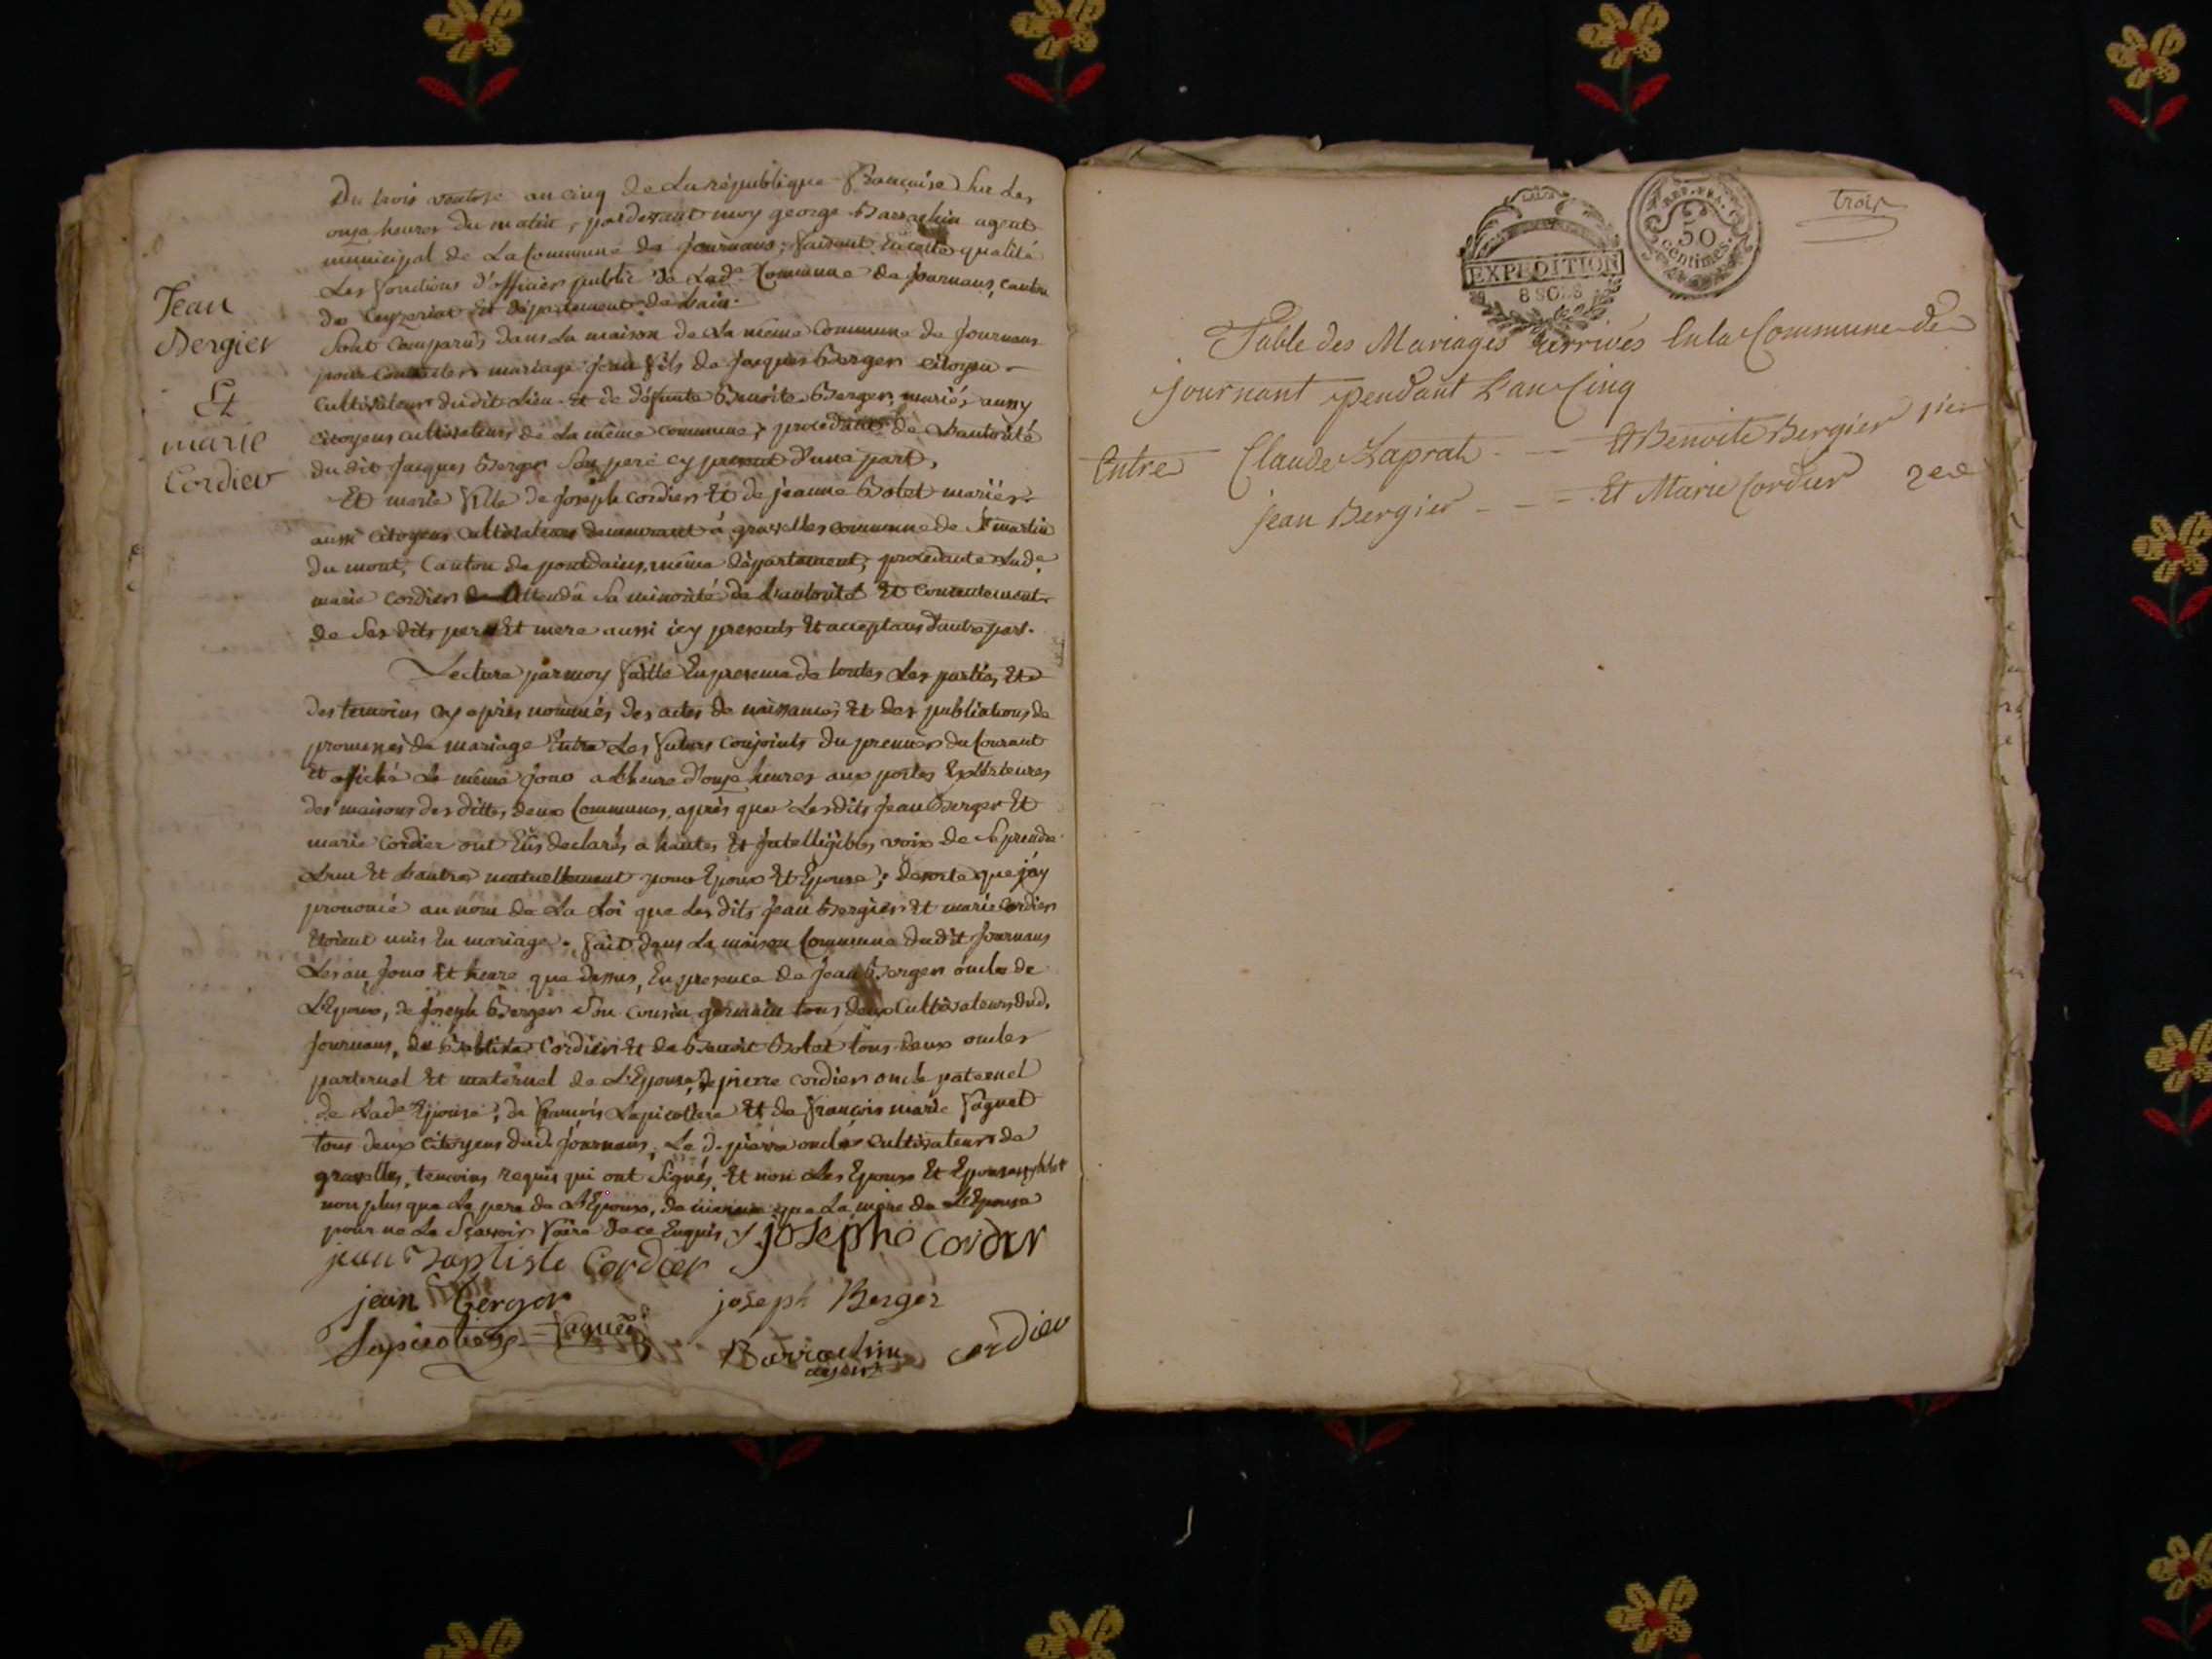 Jean
Bergier
Et
marie
Cordier
Du trois ventose an cinq de La république Francaise Sur Les
onze heures du matin, pardevant moy george Barrachin agent
municipal de La Commune de Journans, faisant En cette qualité
Les fonctions d'officier public de Lade Commune de Journans, canton
de Ceyzeriat Et département de Lain.
Sont Comparus dans La maison de La même Commune de Journans
pour Contracter mariage jean fils de Jacques Berger citoyen
Cultivateur dudit Lieu Et de défunte Benoite Berger, mariés aussy
citoyens cultivateurs de La même commune, procedant de Lautorité
du dit Jacques Berger Son pere cy present d'une part,
Et marie fille de Joseph cordier Et de jeanne Bolet mariés
aussi citoyens cultivateurs demeurant à gravelles commune de St martin
du mont, Canton de pontdains, même département, procedante Lade
marie cordier attendu Sa minorité de Lautorité Et Consentement
de Ses dits pere Et mere aussi icy presents Et acceptans d'autre part.
Lecture par moy faitte En presence de toutes Les parties, Et
des temoins cy après nommés des actes de naissances Et des publications de
promesses de mariage Entre Les futurs conjoints du premier du Courant
Et affiché Le même Jour a Lheure d'onze heures aux portes Extérieures
des maisons des dittes deux Communes, après que Lesdits Jean Berger Et
marie Cordier ont Eus declarés a hautes Et Intelligibles voix de Se prendre
Lun Et Lautre mutuellement pour Epoux Et Epouse; desorte que j'ay
prononcé au nom de La Loi que Les dits Jean Bergier Et marie Cordier
Etoient unis En mariage. fait dans La maison Commune dudit Journans
Les an Jour Et heure que dessus, En presence de Jean Berger oncle de
L'Epoux, de Joseph Berger Son cousin germain tous deux Cultivateurs dud.
Journans, de Cordier Et de Benoit Bolet tous deux oncles
paternel Et maternel de L'Epouse, de pierre cordier oncle paternel
de Lade Epouse, de francois Lapicotiere Et de francois marie faguet
tous deux citoyens dud. Journans, Le d. pierre oncle cultivateur de
gravelles, temoins requis qui ont Signés, Et non Les Epoux Et Epouse, ny bolet
non plus que Le pere de L'Epoux, de même que La mere de L'Epouse
pour ne Le Sçavoir faire de ce Enquis
josephe cordier
jean Baptiste Cordier
jean Berger
joseph Berger
Lapicotiere
faguet
Barrachin
agent
cordier
trois
EXPEDITION
8 SOLS
REP. FRA.
50
centimes.
Table des Mariages arrivés En la Commune de
Journant pendant L'an Cinq
Entre Claude Laprat - - - Et Benoite Bergier 1ier
Jean Bergier - - - Et Marie Cordier 2eme